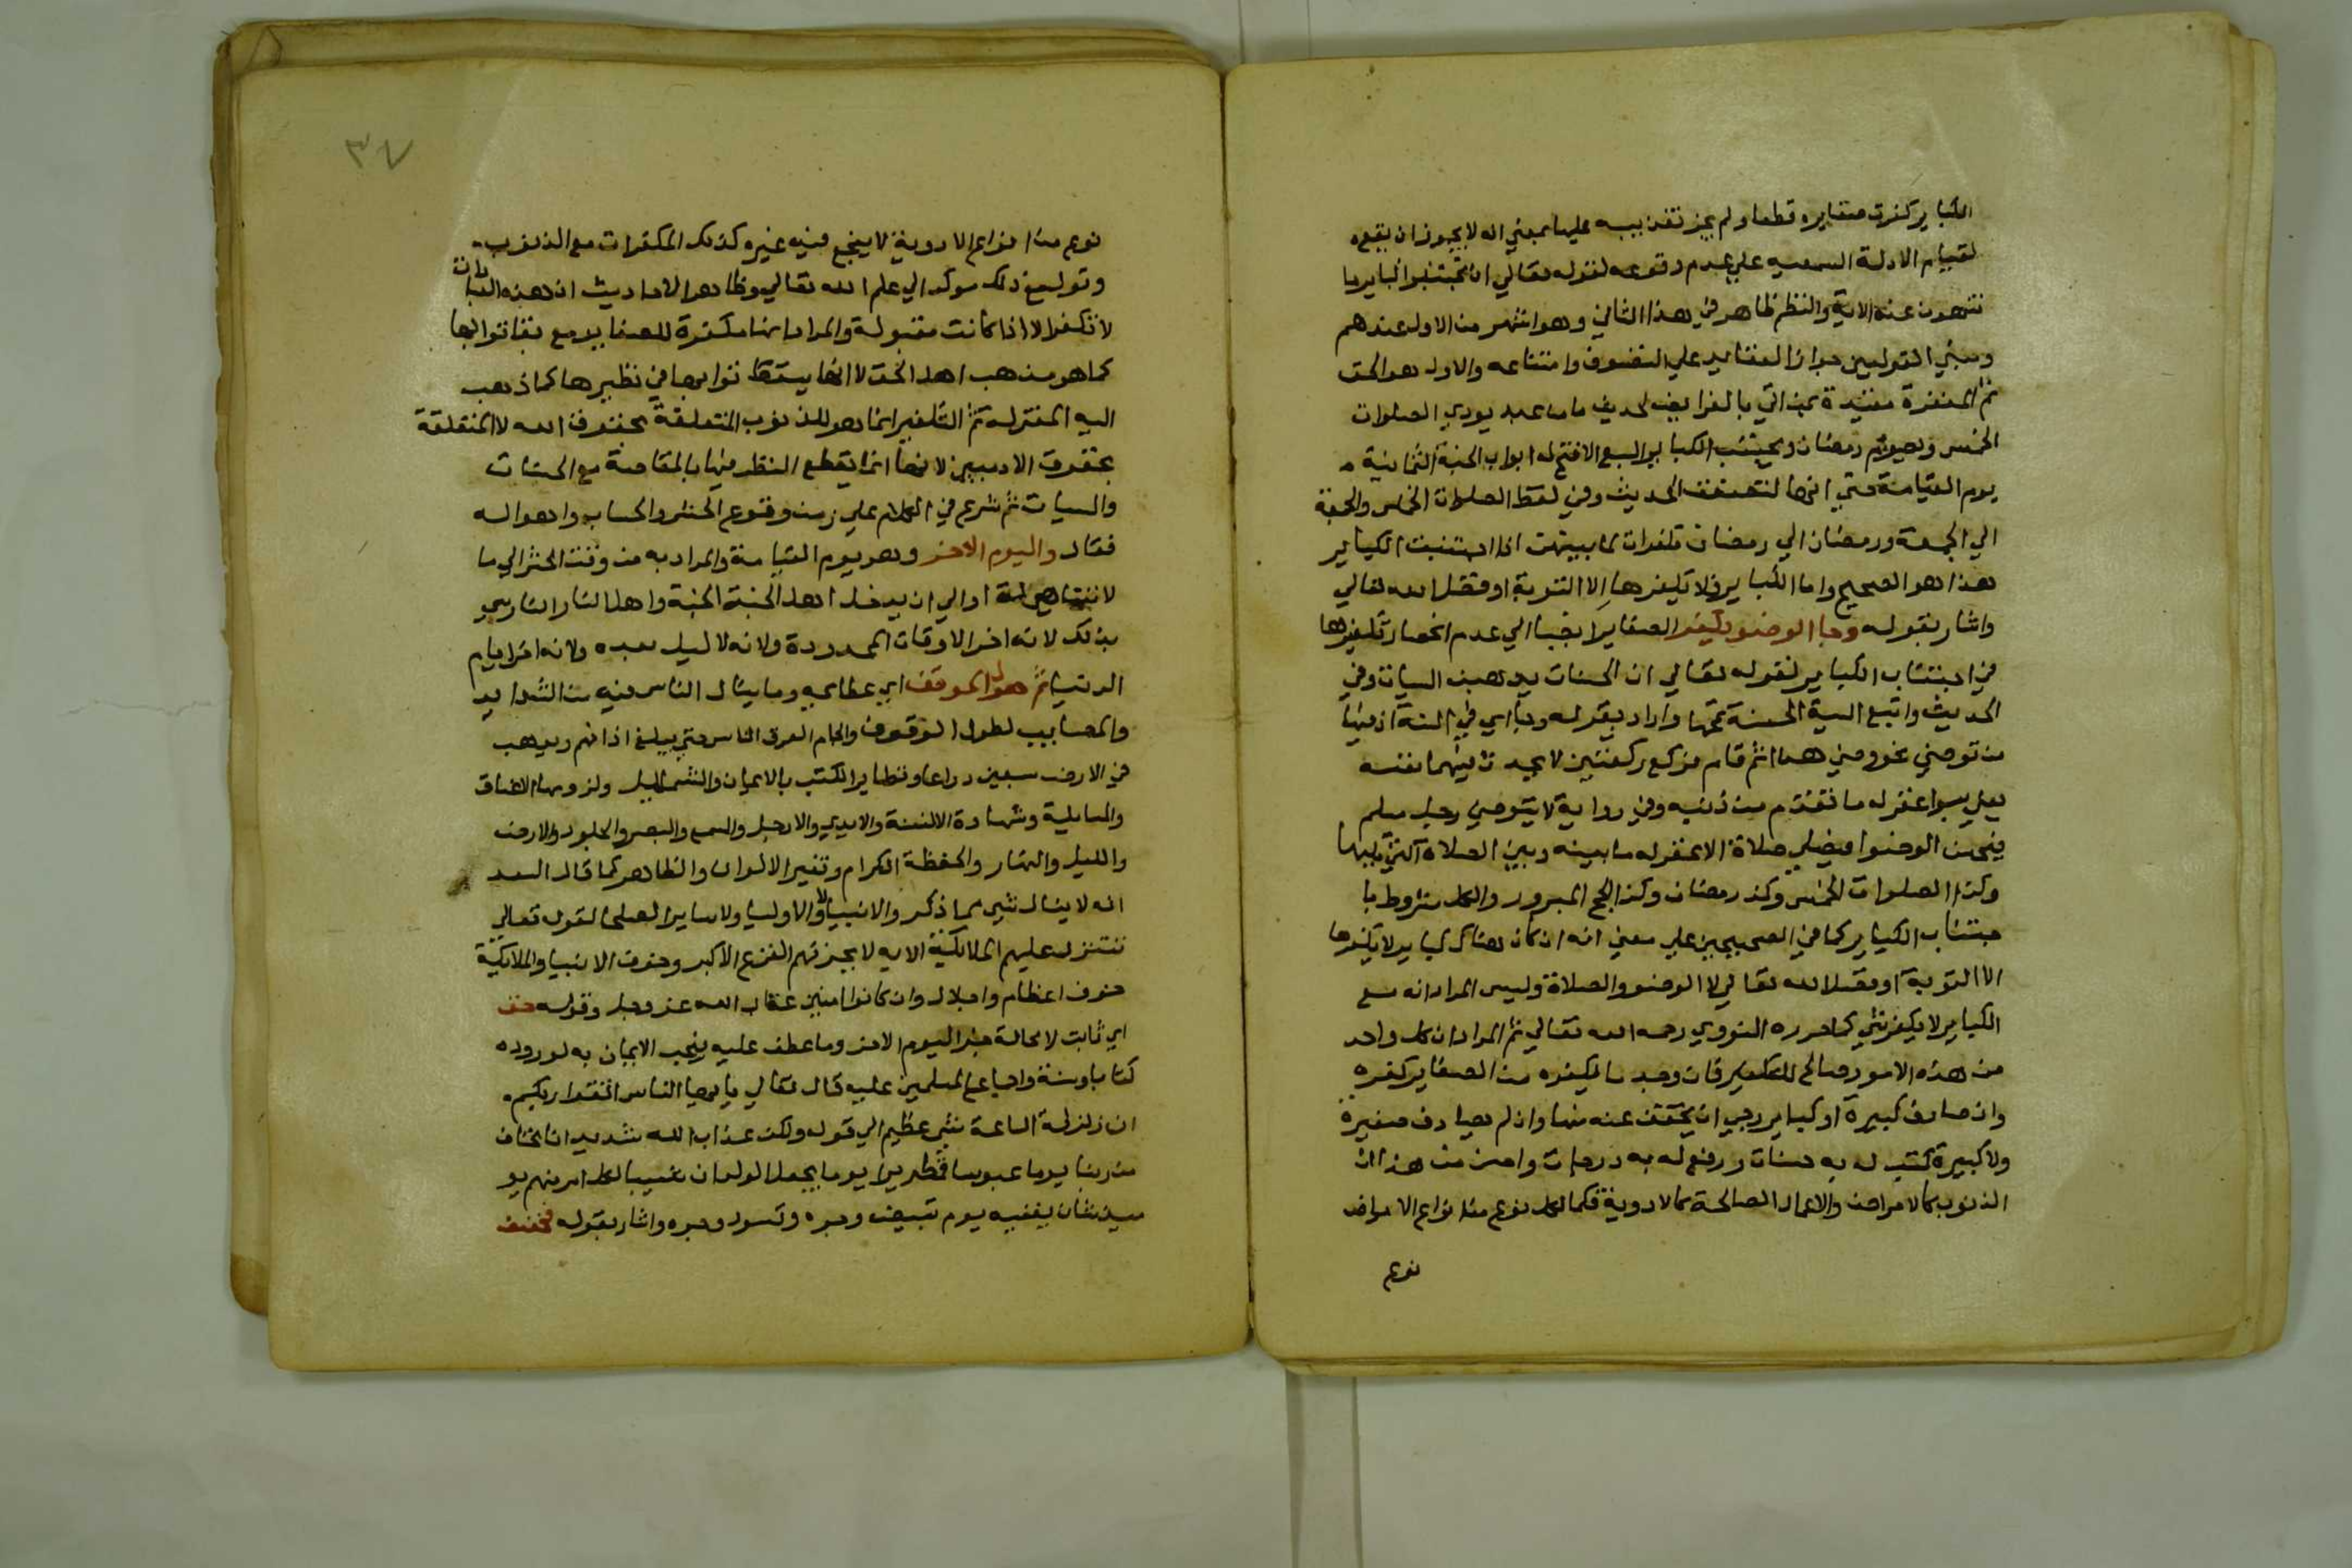 الكباير كفرت صغايره قطعا ولم يجز تعذيبه عليها بمعني انه لا يجوز ان يقع
لقيام الادلة السمعيه علي عدم وقوعه لقوله تعالي ان تجتنبوا كباير ما
تنهون عنه الاية والنظم ظاهر في هذا الثاني وهو اشهر من الاول عندهم
ومبني القولين جواز العقاب علي الصغاير وامتناعه والاول هو الحق
ثم المغفرة مقيدة بمن اتي بالفرايض لحديث ما من عبد يودي الصلوات
الخمس ويصوم رمضان ويجتنب الكباير السبع الا فتح له ابواب الجنة الثمانية
يوم القيامة حتي انها لتصفق الحديث وفي لفظ الصلوات الخمس والجمعة
الي الجمعة ورمضان الي رمضان مكفرات لما بينهن اذا اجتنبت الكباير
هذا هو الصحيح واما الكباير فلا يكفرها الا التوبة او فضل الله تعالي
واشار بقوله وجا الوضو يكفر الصغاير ايضا الي عدم انحصار تكفيرها
في اجتناب الكباير لقوله تعالي ان الحسنات يذهبن السيات وفي
الحديث واتبع السية الحسنة تمحها واراد بقوله وجا اي في السنة اذ فيها
من توضي نحو وضوي هذا ثم قام فركع ركعتين لا يحدث فيهما نفسه
بسوا غفر له ما تقدم من ذنبه وفي رواية لا يتوضي رجل مسلم
فيحسن الوضوا فيصلي صلاة الا غفر له ما بينه وبين الصلاة التي تليها
وكذا الصلوات الخمس وكذا رمضان وكذا الحج المبرور والكل مشروط با
جتناب الكباير كما في الصحيحين علي معني انه ان كان هناك كباير لا يكفرها
الا التوبة او فضل الله تعالي لا الوضو والصلاة وليس المراد انه مع
الكباير لا يكفر شي كما حرره النووي رحمه الله تعالي ثم المراد ان كل واحد
من هذه الامور صالح للتكفير فان وجد ما يكفره من الصغاير كفره
وان صادف كبيرة او كباير رجي ان يخفف عنه منها وان لم يصادف صغيرة
ولا كبيرة كتب له به حسنات ورفع له به درجات واحسن من هذا ان
الذنوب كالامراض والاعمال الصالحة كالادوية فكما لكل نوع من انواع الامراض
نوع
٣٧
نوع من انواع الادوية لا ينجع فيه غيره كذلك المكفرات مع الذنوب
وقوله مع ذلك موكد الي علم الله تعالي وظاهر الاحاديث ان هذه
لا تكفر الا اذا كانت مقبولة والمراد انها مكفرة للصغاير مع بقا ثوابها
كما هو مذهب اهل الحق لا انها يسقط ثوابها في نظيرها كما ذهب
اليه المعتزلة ثم التكفير انما هو للذنوب المتعلقة بحقوق الله لا المتعلقة
بحقوق الادميين لانها انما يقطع النظر فيها بالمقاصة مع الحسنات
والسيات ثم شرع في الكلام علي زمن وقوع الحشر والحساب واهواله
فقال واليوم الاخر وهو يوم القيامة والمراد به من وقت الحشر الي ما
لا يتناهي او الي ان يدخل اهل الجنة الجنة واهل النار النار سمي
بذلك لانه اخر الاوقات المحدودة ولانه لا ليل بعده ولانه اخر ايام
الدنيا ثم هول الموقف اي عظايمه وما ينال الناس فيه من الشدايد
والمصايب لطول الوقوف والجام العرق الناس حتي يبلغ اذانهم ويذهب
في الارض سبعين دراعا وتطاير الكتب بالايمان والشمايل ولزومها الاعناق
والمسايلة وشهادة الالسنة والايدي والارجل والسمع والبصر والجلود والارض
والليل والنهار والحفظة الكرام وتغير الالوان والظاهر كما قال السعد
انه لا ينال شي مما ذكر والانبيا ولا الاوليا ولا ساير الصلحا لقوله تعالي
تتنزل عليهم الملائكة الايه لا يحزنهم الفزع الاكبر وخوف الانبيا والملائكة
خوف اعظام واجلال وان كانوا امنين عذاب الله عز وجل وقوله حق
اي ثابت لا محالة خبر اليوم الاخر وما عطف عليه فيجب الايمان به لوروده
كتابا وسنة واجماع المسلمين عليه قال تعالي يا ايها الناس اتقوا ربكم
ان زلزلة الساعة شي عظيم الي قوله ولكن عذاب الله شديد انا نخاف
من ربنا يوما عبوسا قمطريرا يوما يجعل الولدان شيبا لكل امر منهم يو
ميذ شان يغنيه يوم تبيض وجوه وتسود وجوه واشار بقوله فخفف